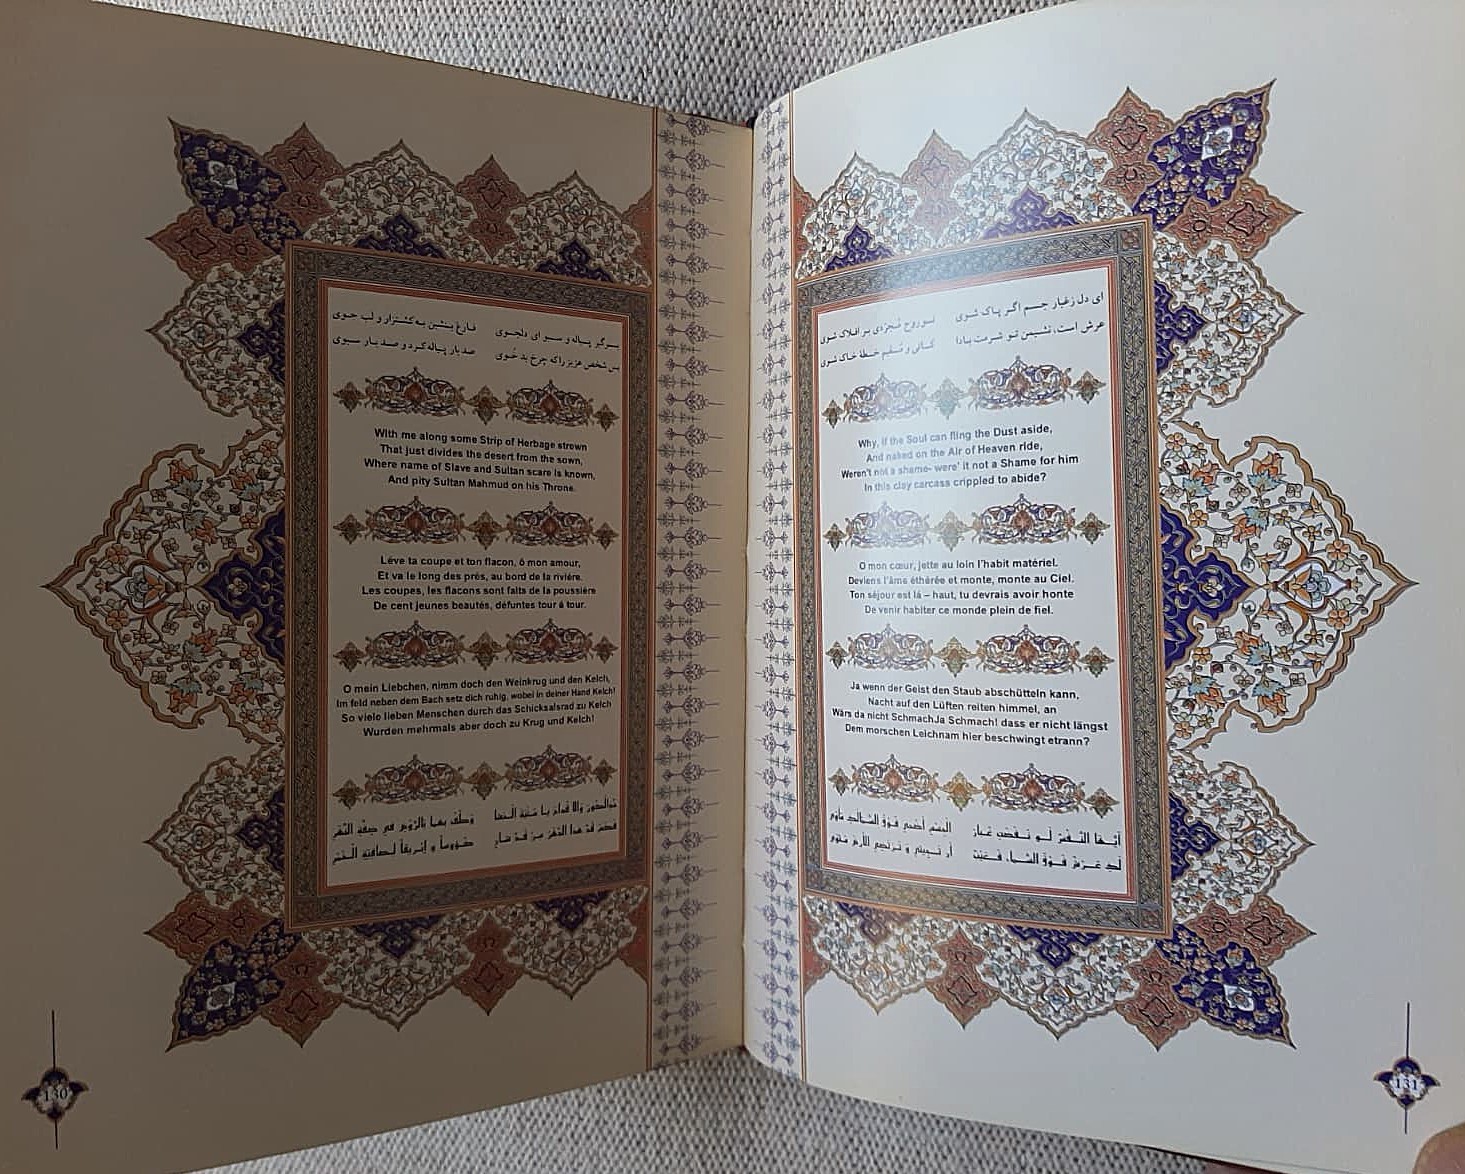 برگیر پیاله و سبو ای دلجوی
فارغ بنشین به کشتزار و لب جوی
بس شخص عزیز را که چرخ بدخوی
صد بار پیاله کرد و صد بار سبوی
With me along some Strip of Herbage strewn
That just divides the desert from the sown,
Where name of Slave and Sultan scare is known,
And pity Sultan Mahmud on his Throne.
Léve ta coupe et ton flacon, ô mon amour,
Et va le long des prés, au bord de la rivière.
Les coupes, les flacons sont faits de la poussière
De cent jeunes beautés, défuntes tour á tour.
O mein Liebchen, nimm doch den Weinkrug und den Kelch,
Im feld neben dem Bach setz dich ruhig, wobei in deiner Hand Kelch!
So viele lieben Menschen durch das Schicksalsrad zu Kelch
Wurden mehrmals aber doch zu Krug und Kelch!
130
ای دل زغبار جسم اگر پاک شوی
تو روح مجردی بر افلاک شوی
عرش است، نشیمن تو شرمت بادا
کائی و مقیم خطهٔ خاک شوی
Why, if the Soul can fling the Dust aside,
And naked on the Air of Heaven ride,
Weren't not a shame- were' it not a Shame for him
In this clay carcass crippled to abide?
O mon cœur, jette au loin l'habit matériel.
Deviens l'âme éthérée et monte, monte au Ciel.
Ton séjour est lá – haut, tu devrais avoir honte
De venir habiter ce monde plein de fiel.
Ja wenn der Geist den Staub abschütteln kann,
Nacht auf den Lüften reiten himmel, an
Wärs da nicht SchmachJa Schmach! dass er nicht längst
Dem morschen Leichnam hier beschwingt etrann?
131